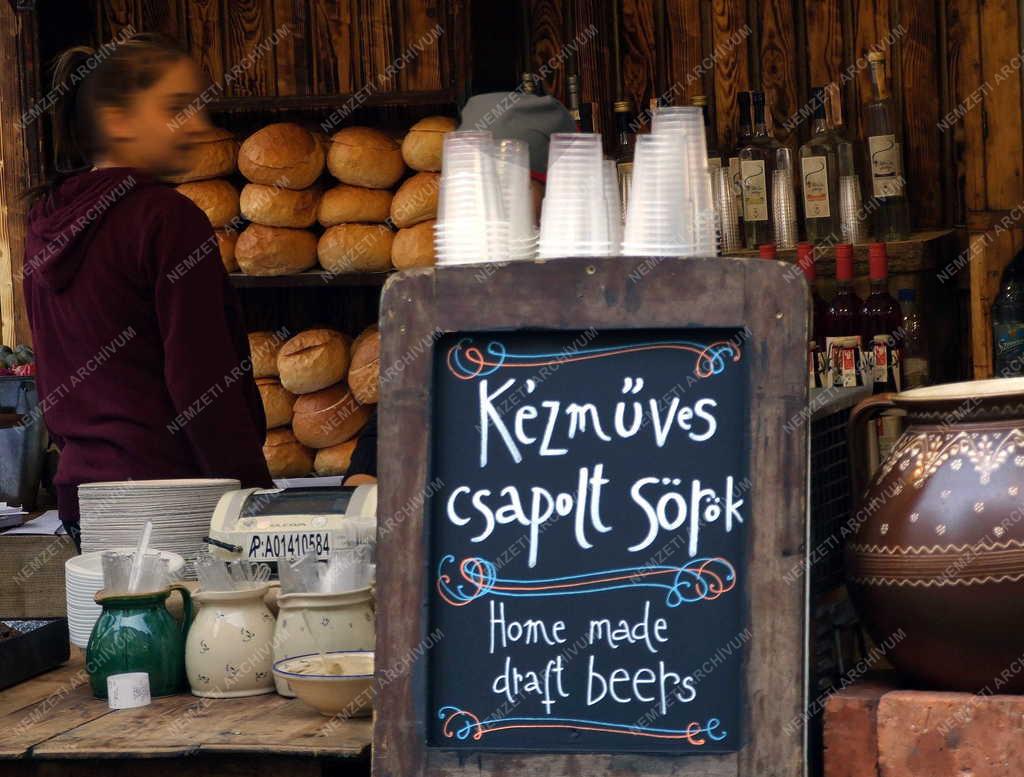 Kézműves
csapolt sörök
Home made
draft beers
AP:A01410584
NEMZETI ARCHÍVUM